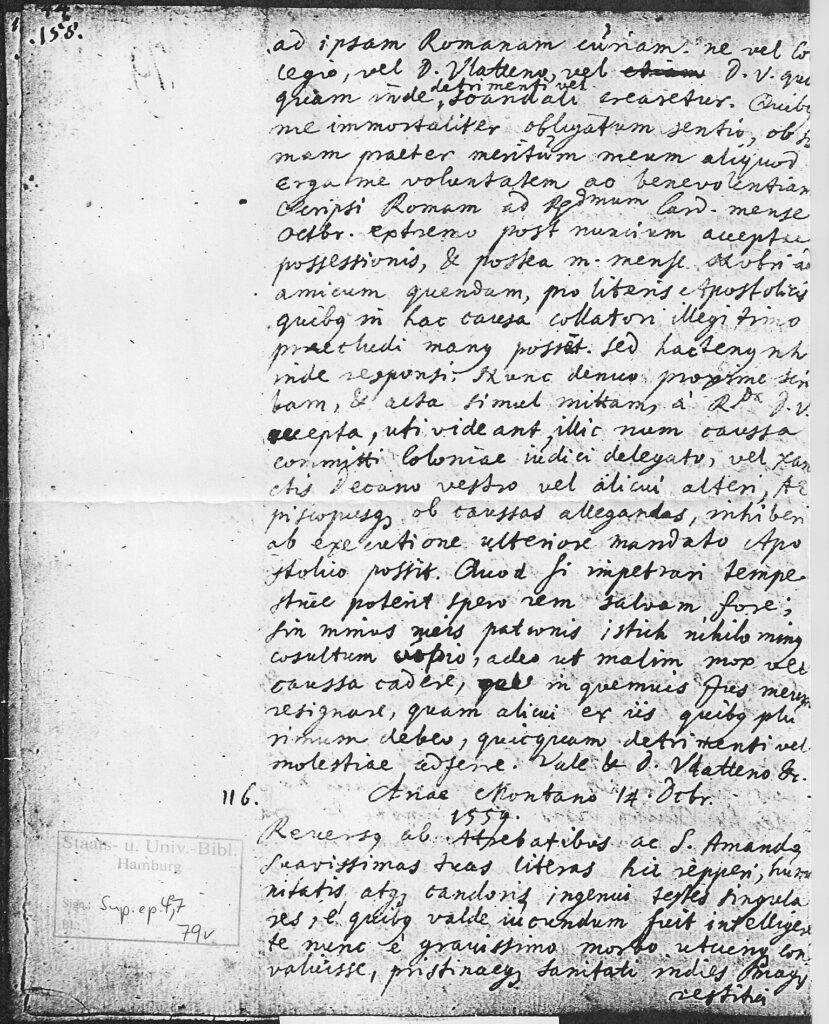 44
.158.
ad ipsam Romanam curiam. ne vel Co
legio, vel D. Vlatteno, vel D. V. quic
quam inde detrimenti vel scandali crearetur. Quibus
me immortaliter obligatum sentio, ob
mam praeter meritum meum aliquod
erga me voluntatem ac benevolentiam
Scripsi Romam ad Rdmum Card. mense
Octbr. extremo post nuncium acceptae
possessionis, & postea m. mense ad
amicum quendam, pro literis Apostolicis
quibq in hac causa collatori illegitimo
praecludi manq possit. sed hactenq nh
inde responsi. Nunc denuo proxime scri
bam, & acta simul mittam, à R.da D. V.
accepta, uti videant, illic num caussa
committi Coloniae iudici delegato, vel Xan
ctis Decano vestro vel alicui alteri, AE
piscopusq, ob caussas allegandas, inhiberi
ab executione ulteriore mandato Apo
stolico possit. Quod si impetrari tempe
stive poterit spero rem salvam fore;
sin minus meis patronis istich nihilo minq
cosultum cupio, adeo ut malim mox vel
caussa cadere, in quemuis Jus meum
resignare, quam alicui ex iis quibq plu
rimum debeo, quicquam detrimenti vel
molestiae adferre. Vale & D. Vlatteno &c.
116. Ariae Montano 14 Octbr.
1559.
Reversq ab Atrebatibus ac S. Amando
suavissimas tuas literas hic repperi, huma
nitatis atq, candoris ingenui testes singula
res, è quibq valde iucundum fuit intelligere
te nunc è gravissimo morbo utcunq con
valuisse, pristinaeq, sanitati indies magq
restitui
Staats- u. Univ.-Bibl.
Hamburg
Sign.: Sup. ep. 4,7
Bl.: 79v